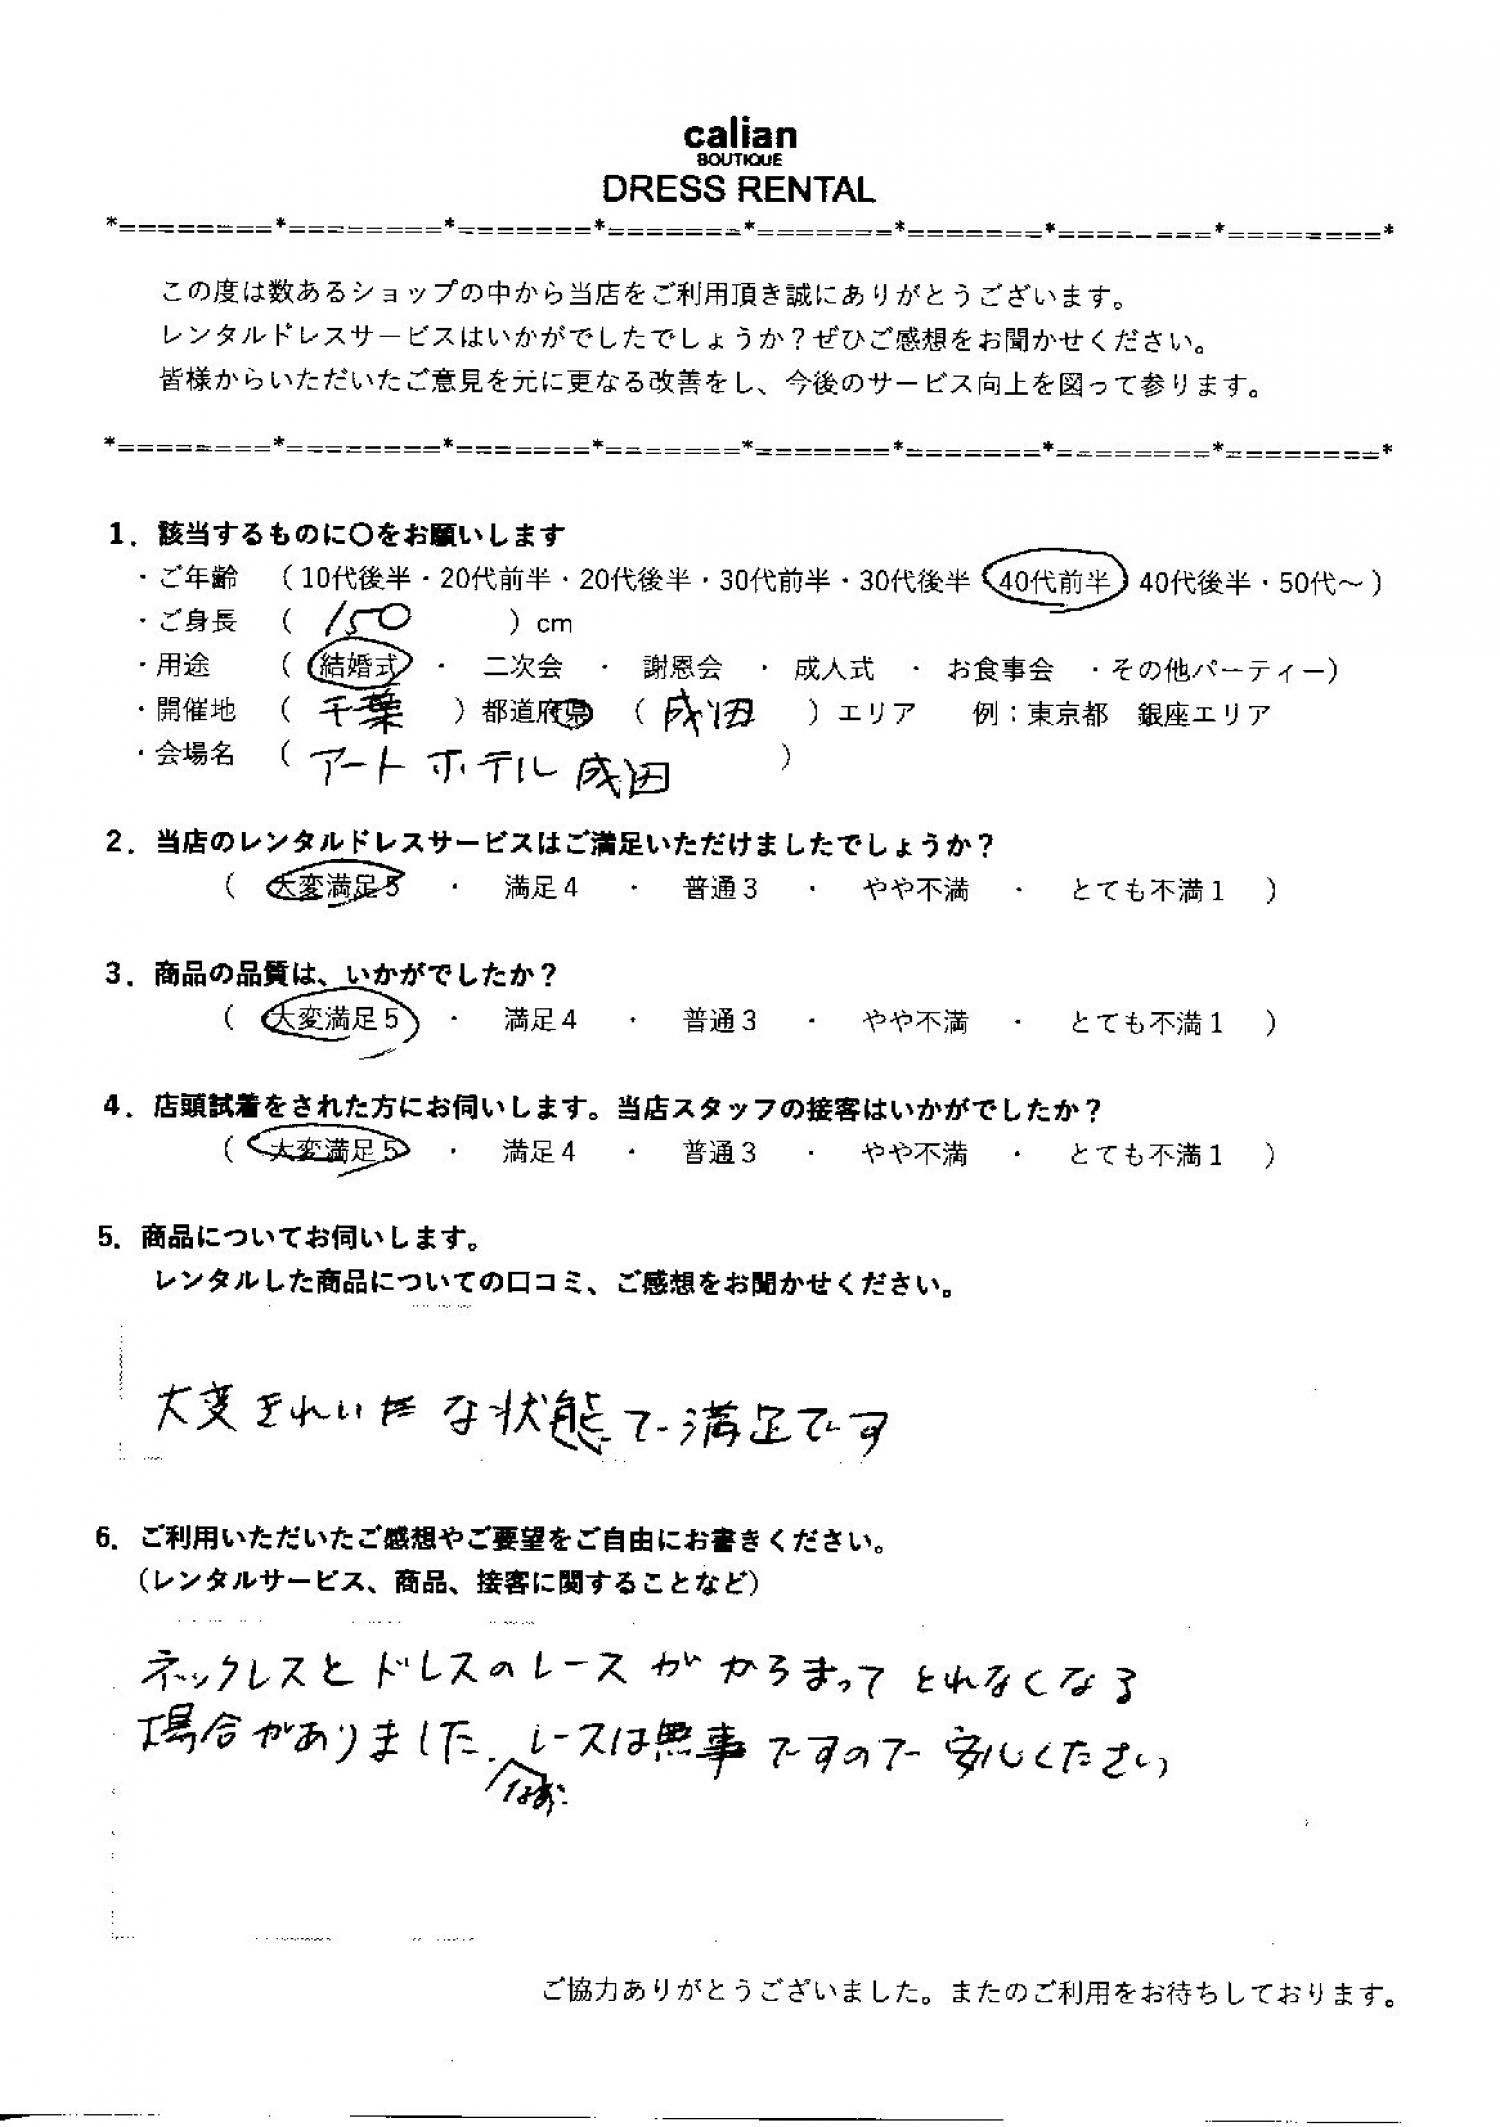 calian
BOUTIQUE
DRESS RENTAL
*========*========*=======*=======*=======*=======*========*========*
この度は数あるショップの中から当店をご利用頂き誠にありがとうございます。
レンタルドレスサービスはいかがでしたでしょうか？ぜひご感想をお聞かせください。
皆様からいただいたご意見を元に更なる改善をし、今後のサービス向上を図って参ります。
*========*========*=======*=======*=======*=======*========*========*
1．該当するものに〇をお願いします
・ご年齢 （10代後半・20代前半・20代後半・30代前半・30代後半 40代前半 40代後半・50代～）
・ご身長 （ 150 ）cm
・用途 （ 結婚式 ・ 二次会 ・ 謝恩会 ・ 成人式 ・ お食事会 ・その他パーティー）
・開催地 （ 千葉 ）都道府県 （ 成田 ）エリア 例：東京都 銀座エリア
・会場名 （ アートホテル成田 ）
2．当店のレンタルドレスサービスはご満足いただけましたでしょうか？
（ 大変満足5 ・ 満足4 ・ 普通3 ・ やや不満 ・ とても不満1 ）
3．商品の品質は、いかがでしたか？
（ 大変満足5 ・ 満足4 ・ 普通3 ・ やや不満 ・ とても不満1 ）
4．店頭試着をされた方にお伺いします。当店スタッフの接客はいかがでしたか？
（ 大変満足5 ・ 満足4 ・ 普通3 ・ やや不満 ・ とても不満1 ）
5．商品についてお伺いします。
レンタルした商品についての口コミ、ご感想をお聞かせください。
大変きれいな状態で満足です
6．ご利用いただいたご感想やご要望をご自由にお書きください。
（レンタルサービス、商品、接客に関することなど）
ネックレスとドレスのレースがからまってとれなくなる
場合がありました。レースは無事ですので安心ください
なお
ご協力ありがとうございました。またのご利用をお待ちしております。